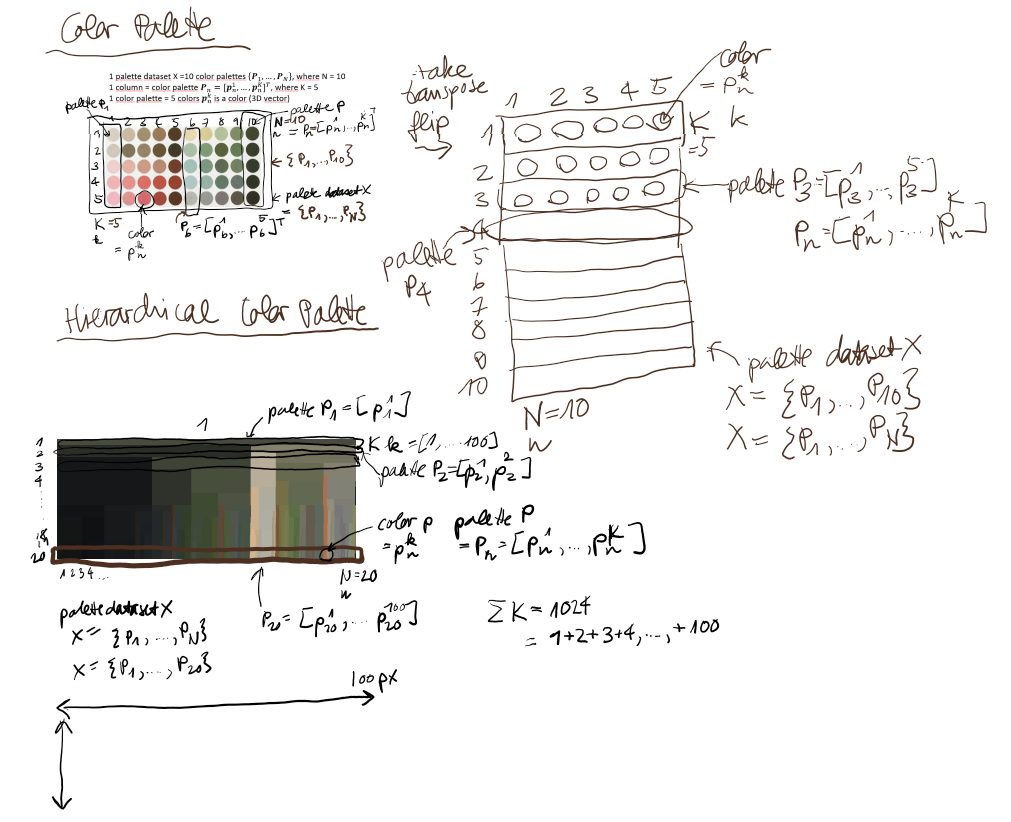 Color Palette
1 palette dataset X =10 color palettes {P₁, ..., P_N}, where N = 10
1 column = color palette Pₙ = [pₙ¹, ..., pₙᴷ]ᵀ, where K = 5
1 color palette = 5 colors pₙᵏ is a color (3D vector)
palette P₁
palette P
1 2 3 4 5 6 7 8 9 10
N=10
n = Pₙ=[pₙ¹,..,pₙᴷ]ᵀ
1
2
3
4
5
← {P₁,..,P₁₀}
palette dataset X
= {P₁,..,P_N}
K=5
k
color
= pₙᵏ
P₆=[p₆¹,... p₆⁵]ᵀ
take
transpose
flip
color
= pₙᵏ
1 2 3 4 5
K k
=5
1
2
3
4
5
6
7
8
9
10
palette P₃=[p₃¹,..,p₃⁵]
Pₙ=[pₙ¹,....,pₙᴷ]
palette
P₄
N=10
n
palette dataset X
X = {P₁,..,P₁₀}
X = {P₁,..,P_N}
Hierarchical Color Palette
palette P₁=[p₁¹]
1
K k=[1,...100]
palette P₂=[p₂¹,p₂²]
1
2
3
4
20
color p
= pₙᵏ
palette P
= Pₙ=[pₙ¹,...,pₙᴷ]
1 2 3 4 ...
N=20
n
P₂₀=[p₂₀¹,... p₂₀¹⁰⁰]
palette dataset X
X= {P₁,...,P_N}
X= {P₁,...,P₂₀}
ΣK=1024
= 1+2+3+4,...,+100
100px